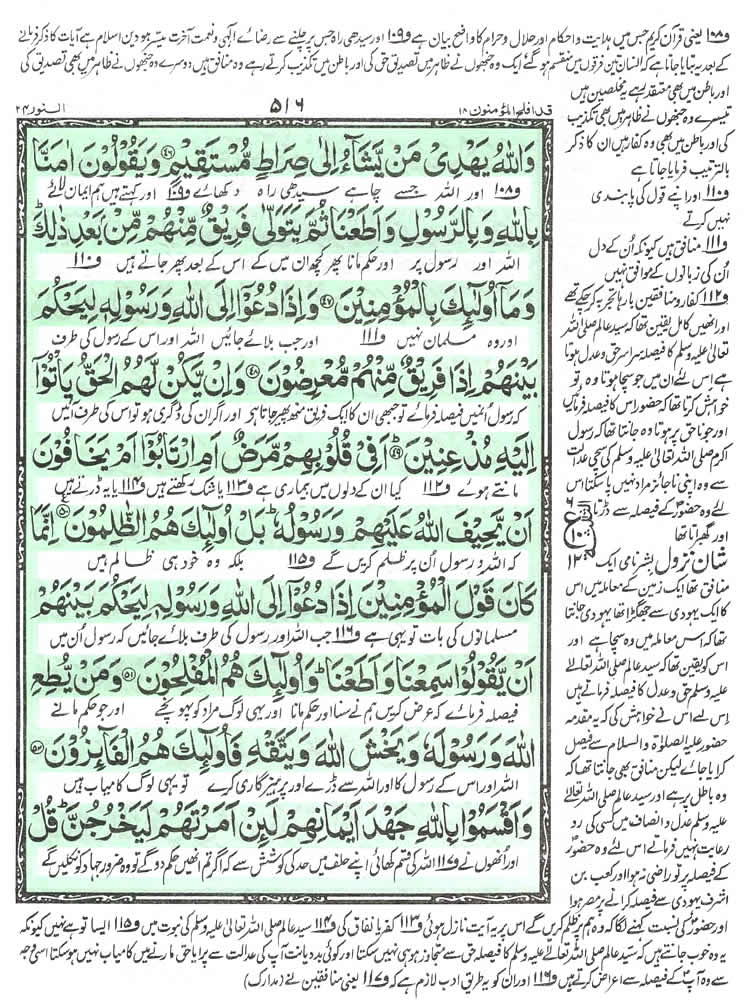 و۱۰۸ یعنی قرآن کریم جس میں ہدایت و احکام اور حلال و حرام کا واضح بیان ہے و۱۰۹ اور سیدھی راہ جس پر چلنے سے رضائے الٰہی و نعمت آخرت میسر ہو دین اسلام ہے آیات کا ذکر فرمانے
کے بعد یہ بتایا جاتا ہے کہ انسان تین فرقوں میں منقسم ہو گئے ایک وہ جنھوں نے ظاہر میں تصدیق حق کی اور باطن میں تکذیب کرتے رہے وہ منافق ہیں دوسرے وہ جنھوں نے ظاہر میں بھی تصدیق کی
قد افلح المؤمنون ۱۸
۵۱۶
النور ۲۴
وَاللّٰهُ یَهْدِیْ مَنْ یَّشَآءُ اِلٰى صِرَاطٍ مُّسْتَقِیْمٍ ﴿۴۶﴾ وَیَقُوْلُوْنَ اٰمَنَّا
و۱۰۸ اور اللہ جسے چاہے سیدھی راہ دکھائے و۱۰۹ اور کہتے ہیں ہم ایمان لائے
بِاللّٰهِ وَبِالرَّسُوْلِ وَاَطَعْنَا ثُمَّ یَتَوَلّٰى فَرِیْقٌ مِّنْهُمْ مِّنْۢ بَعْدِ ذٰلِكَ ؕ
اللہ اور رسول پر اور حکم مانا پھر کچھ ان میں کے اس کے بعد پھر جاتے ہیں و۱۱۰
وَمَاۤ اُولٰٓئِكَ بِالْمُؤْمِنِیْنَ ﴿۴۷﴾ وَاِذَا دُعُوْۤا اِلَى اللّٰهِ وَرَسُوْلِهٖ لِیَحْكُمَ
اور وہ مسلمان نہیں و۱۱۱ اور جب بلائے جائیں اللہ اور اس کے رسول کی طرف
بَیْنَهُمْ اِذَا فَرِیْقٌ مِّنْهُمْ مُّعْرِضُوْنَ ﴿۴۸﴾ وَاِنْ یَّكُنْ لَّهُمُ الْحَقُّ یَاْتُوْۤا
کہ رسول انہیں فیصلہ فرمائے تو جبھی ان کا ایک فریق منھ پھیر جاتا ہے اور اگر ان کی ڈگری ہو تو اس کی طرف آئیں
اِلَیْهِ مُذْعِنِیْنَ ﴿۴۹﴾ اَفِیْ قُلُوْبِهِمْ مَّرَضٌ اَمِ ارْتَابُوْۤا اَمْ یَخَافُوْنَ
مانتے ہوئے و۱۱۲ کیا ان کے دلوں میں بیماری ہے و۱۱۳ یا شک رکھتے ہیں و۱۱۴ یا یہ ڈرتے ہیں
اَنْ یَّحِیْفَ اللّٰهُ عَلَیْهِمْ وَرَسُوْلُهٗ ؕ بَلْ اُولٰٓئِكَ هُمُ الظّٰلِمُوْنَ ﴿۵۰﴾ اِنَّمَا
کہ اللہ و رسول ان پر ظلم کریں گے و۱۱۵ بلکہ وہ خود ہی ظالم ہیں
كَانَ قَوْلَ الْمُؤْمِنِیْنَ اِذَا دُعُوْۤا اِلَى اللّٰهِ وَرَسُوْلِهٖ لِیَحْكُمَ بَیْنَهُمْ
مسلمانوں کی بات تو یہی ہے و۱۱۶ جب اللہ اور رسول کی طرف بلائے جائیں کہ رسول ان میں
اَنْ یَّقُوْلُوْا سَمِعْنَا وَاَطَعْنَا ؕ وَاُولٰٓئِكَ هُمُ الْمُفْلِحُوْنَ ﴿۵۱﴾ وَمَنْ یُّطِعِ
فیصلہ فرمائے کہ عرض کریں ہم نے سنا اور حکم مانا اور یہی لوگ مراد کو پہونچے اور جو حکم مانے
اللّٰهَ وَرَسُوْلَهٗ وَیَخْشَ اللّٰهَ وَیَتَّقْهِ فَاُولٰٓئِكَ هُمُ الْفَآئِزُوْنَ ﴿۵۲﴾
اللہ اور اس کے رسول کا اور اللہ سے ڈرے اور پرہیزگاری کرے تو یہی لوگ کامیاب ہیں
وَاَقْسَمُوْا بِاللّٰهِ جَهْدَ اَیْمَانِهِمْ لَئِنْ اَمَرْتَهُمْ لَیَخْرُجُنَّ ؕ قُلْ
اور انھوں نے و۱۱۷ اللہ کی قسم کھائی اپنے حلف میں حد کی کوشش سے کہ اگر تم انھیں حکم دو گے تو وہ ضرور جہاد کو نکلیں گے
اور باطن میں بھی معتقد رہے یہ مخلصین ہیں
تیسرے وہ جنھوں نے ظاہر میں بھی تکذیب
کی اور باطن میں بھی وہ کفار ہیں ان کا ذکر
بالترتیب فرمایا جاتا ہے
و۱۱۰ اور اپنے قول کی پابندی
نہیں کرتے
و۱۱۱ منافق ہیں کیونکہ اُن کے دل
اُن کی زبانوں کے موافق نہیں
و۱۱۲ کفار و منافقین بارہا تجربہ کر چکے تھے
اور انھیں کامل یقین تھا کہ سید عالم صلی اللہ
تعالیٰ علیہ وسلم کا فیصلہ سراسر حق و عدل ہوتا
ہے اس لئے ان میں جو سچا ہوتا وہ تو
خواہش کرتا تھا کہ حضور اس کا فیصلہ فرمائیں
اور جو ناحق پر ہوتا وہ جانتا تھا کہ رسول
اکرم صلی اللہ تعالیٰ علیہ وسلم کی سچی عدالت
سے وہ اپنی ناجائز مراد نہیں پا سکتا اس
لئے وہ حضور کے فیصلہ سے ڈرتا
اور گھبراتا تھا
ع
۶
۱۰
۱۲
شان نزول بشر نامی ایک
منافق تھا ایک زمین کے معاملہ میں اس
کا ایک یہودی سے جھگڑا تھا یہودی جانتا
تھا کہ اس معاملہ میں وہ سچا ہے اور
اس کو یقین تھا کہ سید عالم صلی اللہ تعالیٰ
علیہ وسلم حق و عدل کا فیصلہ فرماتے ہیں
اس لئے اس نے خواہش کی کہ یہ مقدمہ
حضور علیہ الصلوٰۃ والسلام سے فیصل
کرایا جائے لیکن منافق بھی جانتا تھا کہ
وہ باطل پر ہے اور سید عالم صلی اللہ تعالیٰ
علیہ وسلم عدل و انصاف میں کسی کی رو
رعایت نہیں فرماتے اس لئے وہ حضور
کے فیصلہ پر تو راضی نہ ہوا اور کعب بن
اشرف یہودی سے فیصلہ کرانے پر مصر ہوا
اور حضور کی نسبت کہنے لگا کہ وہ ہم پر ظلم کریں گے اس پر یہ آیت نازل ہوئی و۱۱۳ کفر یا نفاق کی و۱۱۴ سید عالم صلی اللہ تعالیٰ علیہ وسلم کی نبوت میں و۱۱۵ ایسا تو ہے نہیں کیونکہ
یہ وہ خوب جانتے ہیں کہ سید عالم صلی اللہ تعالیٰ علیہ وسلم کا فیصلہ حق سے متجاوز ہو ہی نہیں سکتا اور کوئی بددیانت آپ کی عدالت سے پرایا حق مارنے میں کامیاب نہیں ہو سکتا اسی وجہ
سے وہ آپ کے فیصلہ سے اعراض کرتے ہیں و۱۱۶ اور ان کو یہ طریق ادب لازم ہے کہ و۱۱۷ یعنی منافقین نے (مدارک)